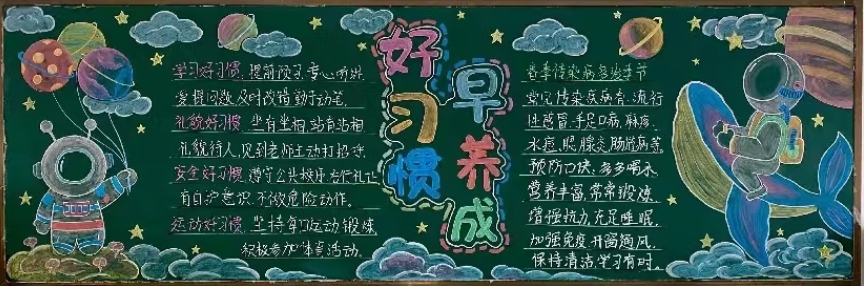 好习惯
早养成
学习好习惯,提前预习,专心听讲
爱提问题,及时改错,勤于动笔。
礼貌好习惯,坐有坐相,站有站相
礼貌待人,见到老师主动打招呼。
安全好习惯,遵守公共秩序,右行礼让
有自护意识,不做危险动作。
运动好习惯,坚持每日运动锻炼
积极参加体育活动。
春季传染病多发季节
常见传染疾病有:流行
性感冒,手足口病,麻疹,
水痘,腮腺炎,肠道病等。
预防口诀,多多喝水
营养丰富,常常锻炼
增强抗力,充足睡眠
加强免疫,开窗通风
保持清洁,学习有时。